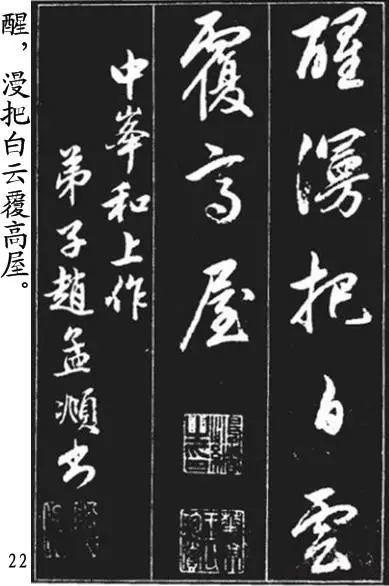 醒漫把白雲
覆高屋
中峯和上作
弟子趙孟頫書
醒，漫把白云覆高屋。
22